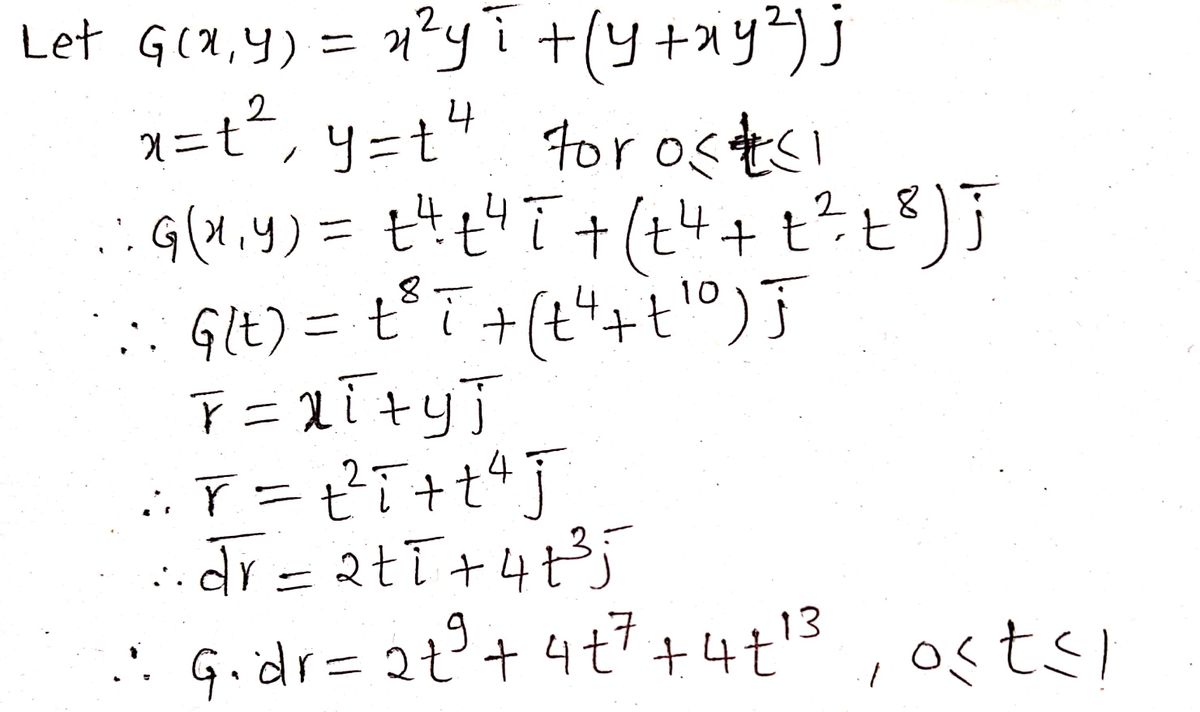 Let G(x,y) = x²y i̅ + (y + xy²) j
x = t², y = t⁴ for 0 ≤ t ≤ 1
∴ G(x,y) = t⁴.t⁴ i̅ + (t⁴ + t².t⁸) j̅
∴ G(t) = t⁸ i̅ + (t⁴ + t¹⁰) j̅
r̅ = x i̅ + y j̅
∴ r̅ = t² i̅ + t⁴ j̅
∴ d̅r̅ = 2t i̅ + 4t³ j̅
∴ G.dr = 2t⁹ + 4t⁷ + 4t¹³ , 0 ≤ t ≤ 1